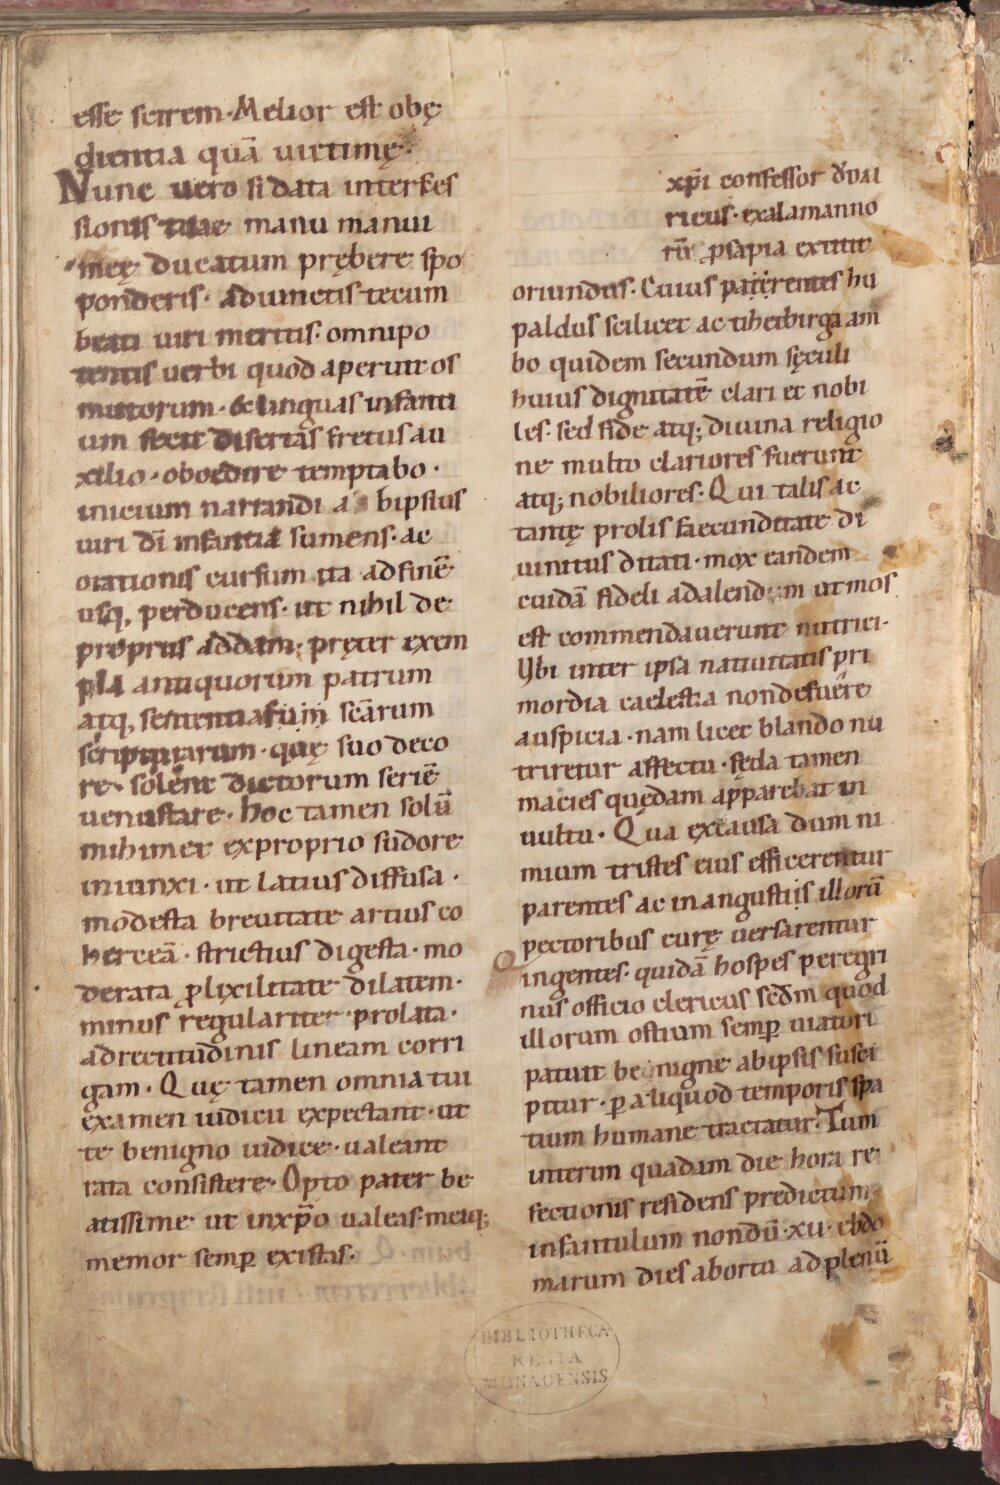 esse scirem. Melior est obę
dientia quā uictimę.
Nunc uero si data intercęs
sionis tuae manu manui
meę ducatum prębere spo
ponderis. Adiunctis tecum
beati uiri meritis. omnipo
tentis uerbi quod aperuit os
mutorum. & linguas infanti
um fecit disertas fretus au
xilio. oboedire temptabo.
inicium narrandi a bipsius
uiri dī infantia sumens. ac
orationis cursum ita adfinē
usq; perducens. ut nihil de
propriis addam; pręter exem
pla antiquorum patrum
atq; sententiarum scārum
scripturarum. quę suo deco
re. solent dictorum seriē
uenustare. hoc tamen solū
mihimet exproprio sudore
iniunxi. ut latius diffusa.
modesta breuitate artius co
herceā. strictius digesta. mo
derata p̄lixilitate dilatem.
minus regulariter prolata.
adrectitudinis lineam corri
gam. Quę tamen omnia tui
examen iudicii expectant. ut
te benigno iudice. ualeant
rata consistere. Opto pater be
atissime ut inxp̄o ualeas. meiq;
memor semp̄ existas.
xp̄i confessor ŏdal
ricus. exalamanno
rū p̄sapia extitit
oriundus. Cuius parrentes hu
paldus scilicet ac thietbirga am
bo quidem secundum sęculi
huius dignitatē clari et nobi
les. sed fide atq; diuina religio
ne multo clariores fuerunt
atq; nobiliores. Qui talis ac
tantę prolis faecunditate di
uinitus ditati. mox eandem
cuidā fideli adalendum ut mos
est commendauerunt nutrici.
Vbi inter ipsa natiuitatis pri
mordia caelestia nondefuēre
auspicia. nam licet blando nu
triretur affectu. fęda tamen
macies quędam apparebat in
uultu. Qua excausa dum ni
mium tristes eius efficerentur
parentes ac inangustiis illorū
pectoribus curę uersarentur
ingentes. quidā hospes peregri
nus officio clericus sed̄m quod
illorum ostium semp̄ uiatori
patuit benigne abipsis susci
pitur. p̄ aliquod temporis spa
tium humane tractatur. Tum
interim quadam die hora re
fectionis residens predictum
infantulum nondū. xv. ebdo
marum dies abortu adplenū
BIBLIOTHECA
REGIA
MONACENSIS